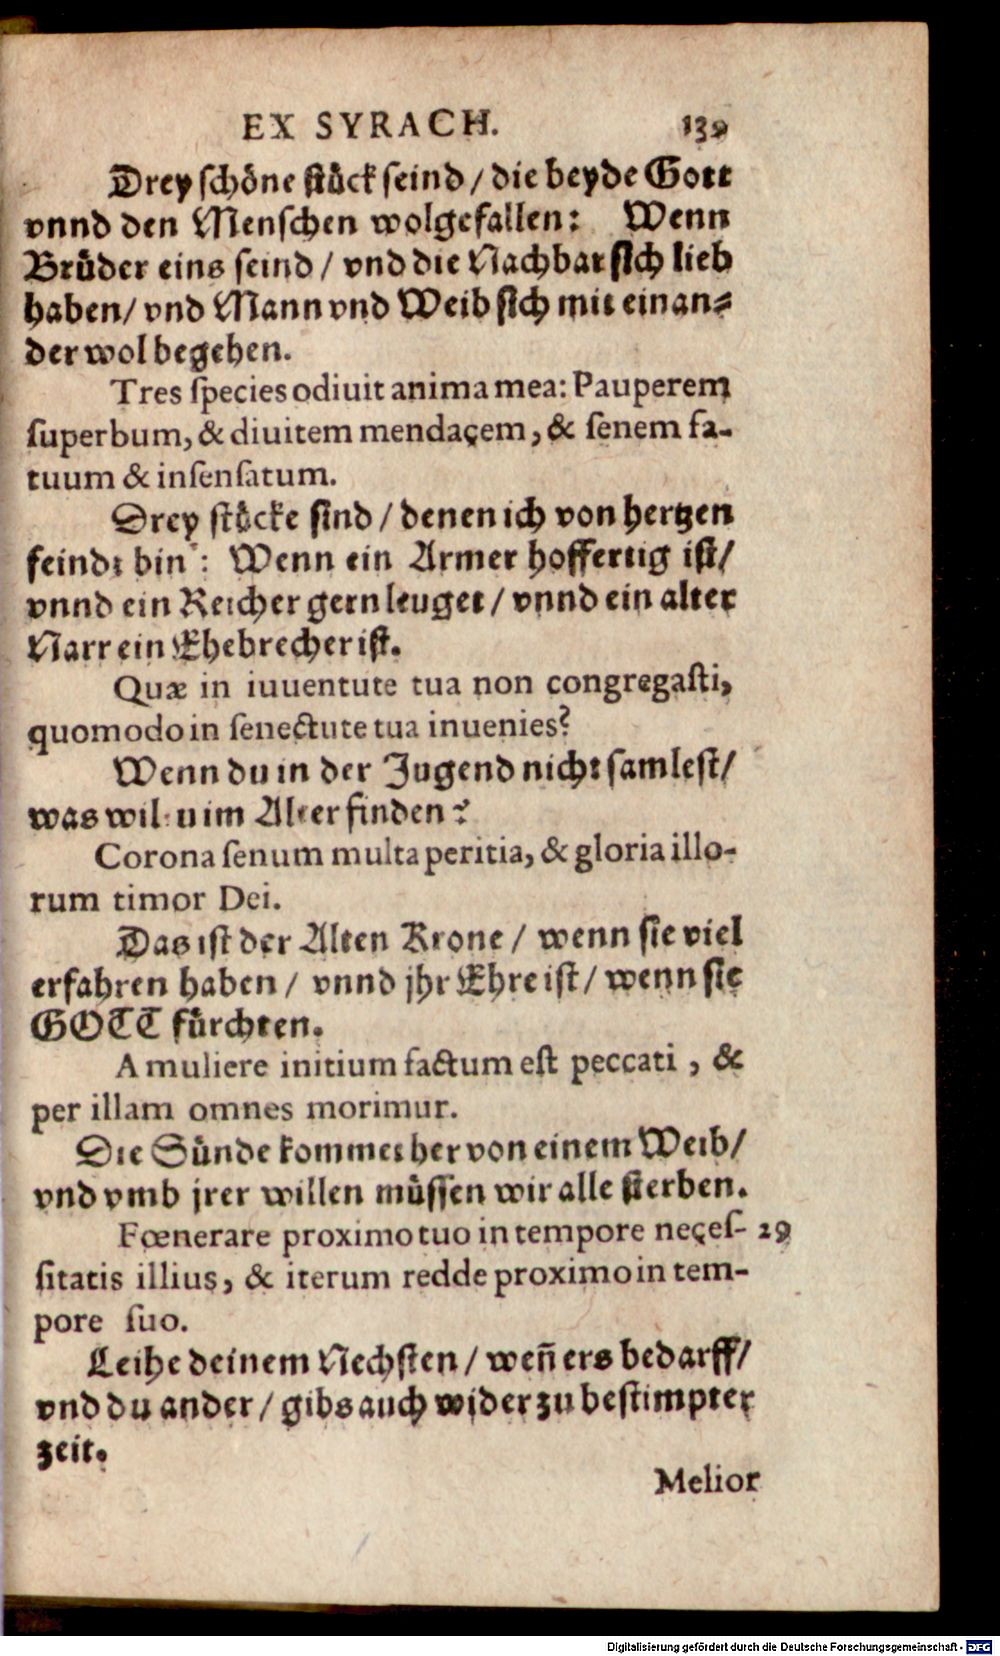 EX SYRACH. 139
Drey schöne stück seind / die beyde Gott
vnnd den Menschen wolgefallen: Wenn
Brüder eins seind / vnd die Nachbar sich lieb
haben / vnd Mann vnd Weib sich mit einan⸗
der wol begehen.
Tres species odiuit anima mea: Pauperem
superbum, & diuitem mendaçem, & senem fa-
tuum & insensatum.
Drey stöcke sind / denen ich von hertzen
feindt bin: Wenn ein Armer hoffertig ist /
vnnd ein Reicher gern leuget / vnnd ein alter
Narr ein Ehebrecher ist.
Quæ in iuuentute tua non congregasti,
quomodo in senectute tua inuenies?
Wenn du in der Jugend nicht samlest /
was wiltu im Alter finden?
Corona senum multa peritia, & gloria illo-
rum timor Dei.
Das ist der Alten Krone / wenn sie viel
erfahren haben / vnnd jhr Ehre ist / wenn sie
GOTT fürchten.
A muliere initium factum est peccati, &
per illam omnes morimur.
Die Sünde kommet her von einem Weib /
vnd vmb jrer willen müssen wir alle sterben.
Fœnerare proximo tuo in tempore neçes- 29
sitatis illius, & iterum redde proximo in tem-
pore suo.
Leihe deinem Nechsten / weñ ers bedarff /
vnd du ander / gibs auch wider zu bestimpter
zeit.
Melior
Digitalisierung gefördert durch die Deutsche Forschungsgemeinschaft - DFG